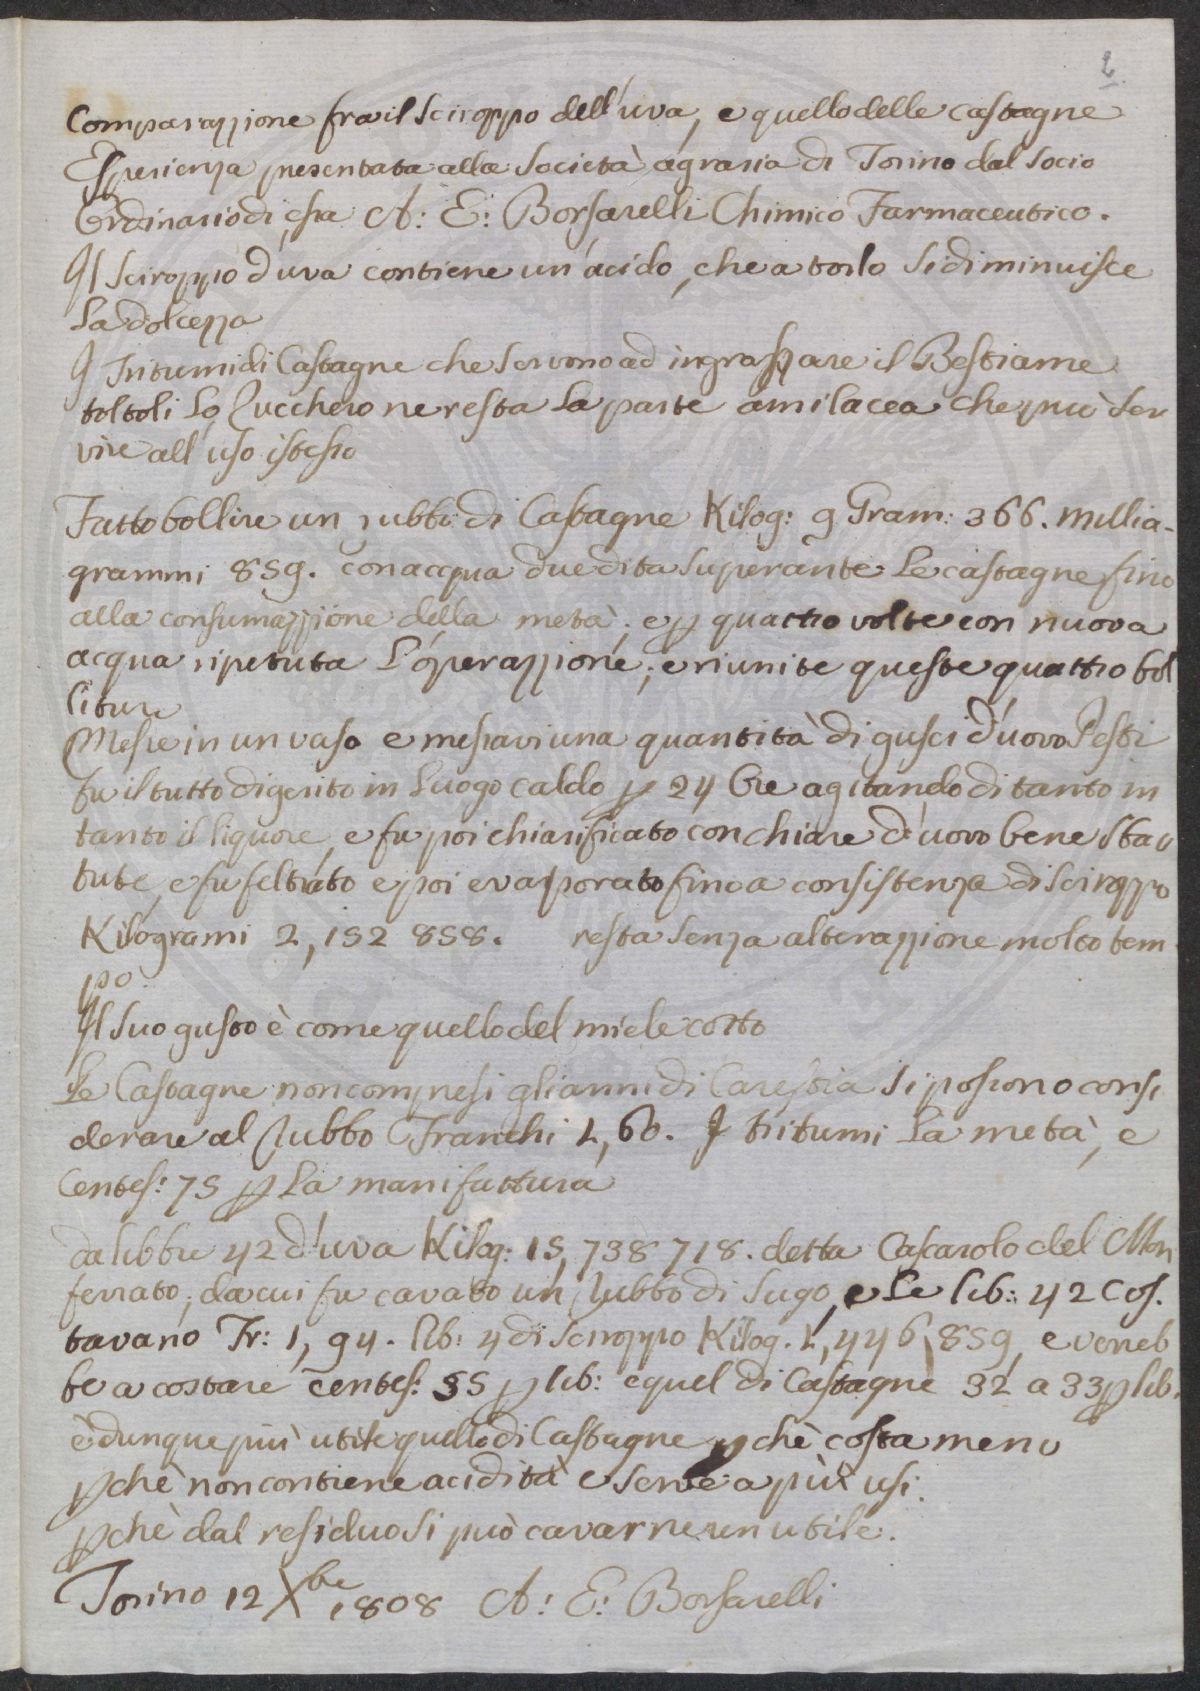 2
Comparazzione fra il Sciroppo dell'uva, e quello delle castagne
Esperienza presentata alla Società agraria di Torino dal Socio
Ordinario di essa A: E: Borsarelli Chimico Farmaceutico.
Il Sciroppo d'uva contiene un'acido, che a torlo si diminuisce
La dolcezza
I Tritumi di Castagne che servono ad ingrassare il Bestiame
toltoli Lo Zucchero ne resta La parte amilacea che può ser
vire all uso istesso
Fatto bollire un rubbo di Castagne Kilog: 9 Gram: 366. millia-
grammi 859. con acqua due dita superante Le castagne fino
alla consumazzione della metà, e p quattro volte con nuova
acqua ripetuta L'operazzione, e riunite queste quattro bol
liture
Messe in un vaso e messavi una quantità di gusci d'uovo Pesti
fu il tutto digerito in Luogo caldo p 24 Ore agitando di tanto in
tanto il liquore, e fu poi chiarificato con chiare d'uovo bene sbat
tute, e fu feltrato e poi evaporato fino a consistenza di Sciroppo
Kilogrami 2,152 858. resta senza alterazzione molto tem
po.
Il Suo gusto è come quello del miele cotto
Le Castagne non compresi gli anni di Carestia si possono consi
derare al Rubbo Franchi 1,60. I tritumi La metà, e
Centes: 75 p La manifattura
da libbre 42 d'uva Kilog: 15,738 718. detta Cascarolo del Mon
ferrato, da cui fu cavato un Rubbo di Sugo, e Le lib: 42 Cos.
tavano Fr: 1,94. lib: 4 di Sciroppo Kilog. 1,446,859, e vereb
be a costare centes: 55 p lib: e quel di Castagne 32 a 33 p lib.
è dunque più utile quello di Castagne p chè costa meno
p chè non contiene acidità e serve a più usi.
p chè dal residuo si può cavarne un utile.
Torino 12 Xbre 1808 A: E: Borsarelli